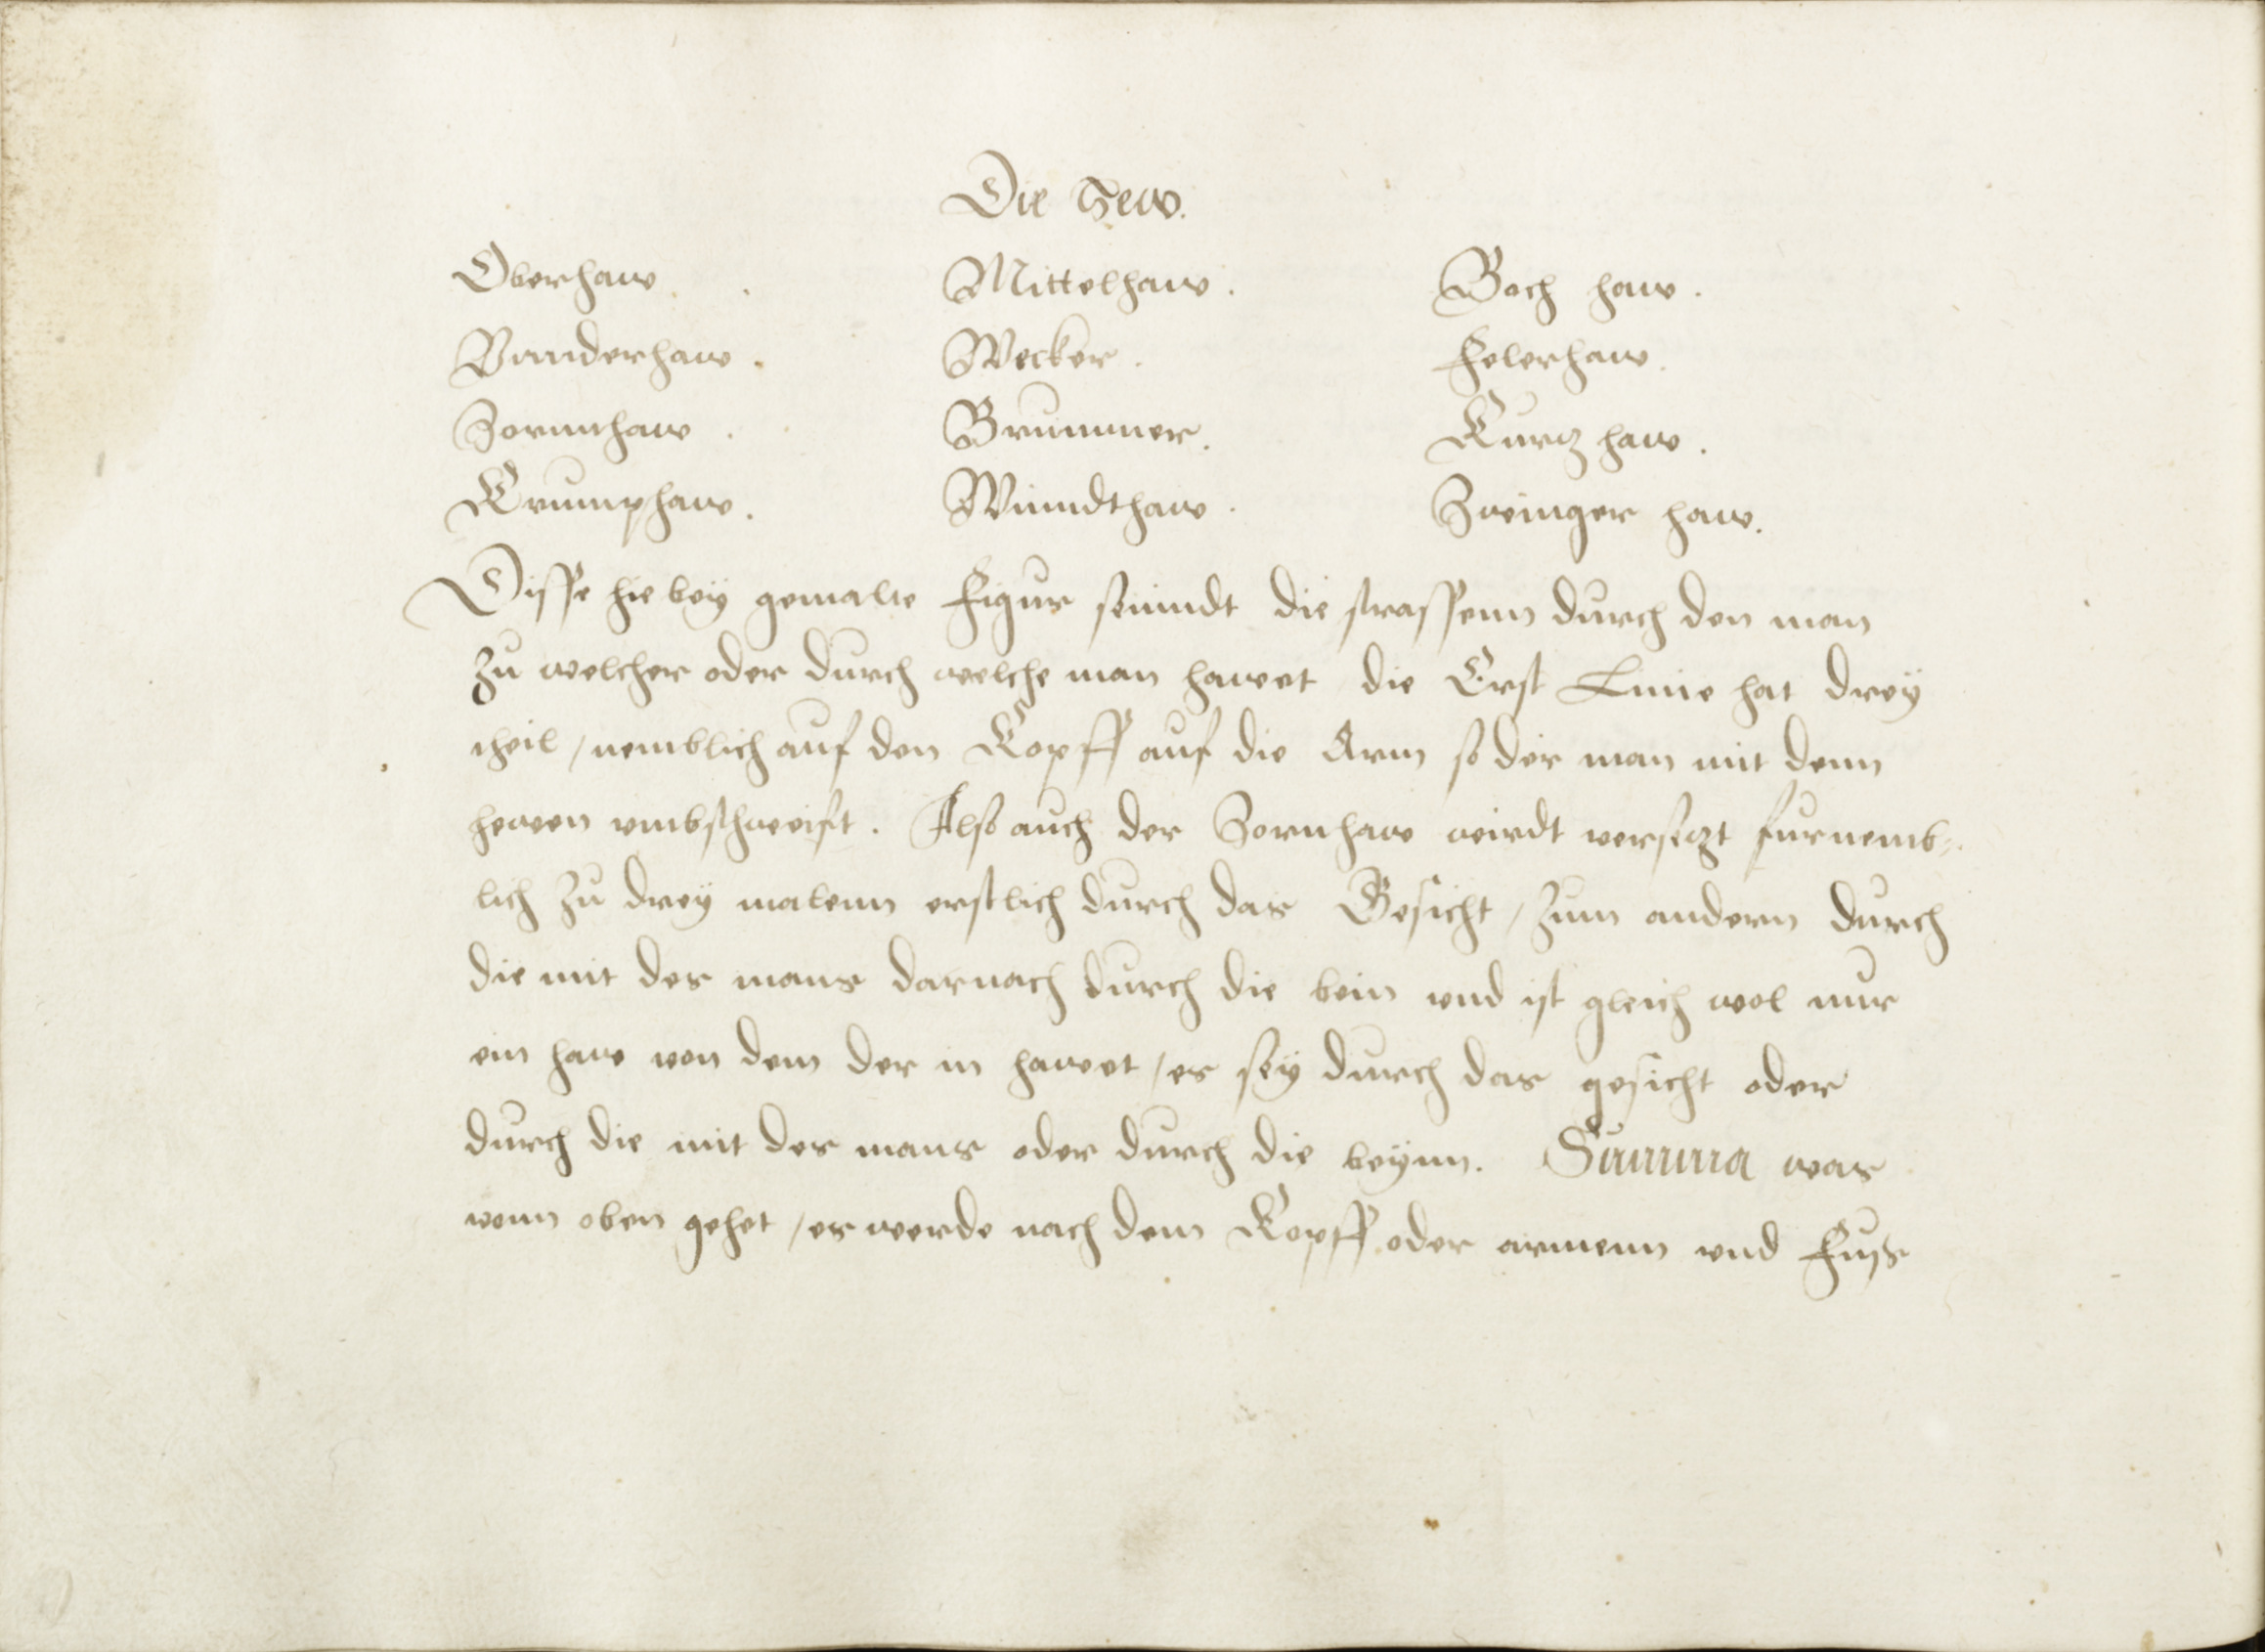 Die Hew.
Oberhaw . Mittelhaw . Boch haw .
Vnnderhaw . Wecker . Felerhaw .
Zornnhaw . Brummer . Kurtz haw .
Krumphaw . Wunndthaw . Zwinger haw .
Disse hie bey gemalte Figur seinndt die strassenn durch den man
zu welcher oder durch welche man hawet die Erst Linie hat drey
theil / nemblich auf den Kopff auf die Arm so der man mit denn
hewen vmbschweift . Also auch der Zornhaw wirdt versetzt furnemb=
lich zu drey malenn erstlich durch das Gesicht / zum andern durch
die mit des mans darnach durch die bein vnd ist gleich wol nur
ein haw von dem der in hawet / es sey durch das gesicht oder
durch die mit des mans oder durch die beynn . Summa was
vonn oben gehet / es werde nach dem Kopff oder armenn vnd Fuß